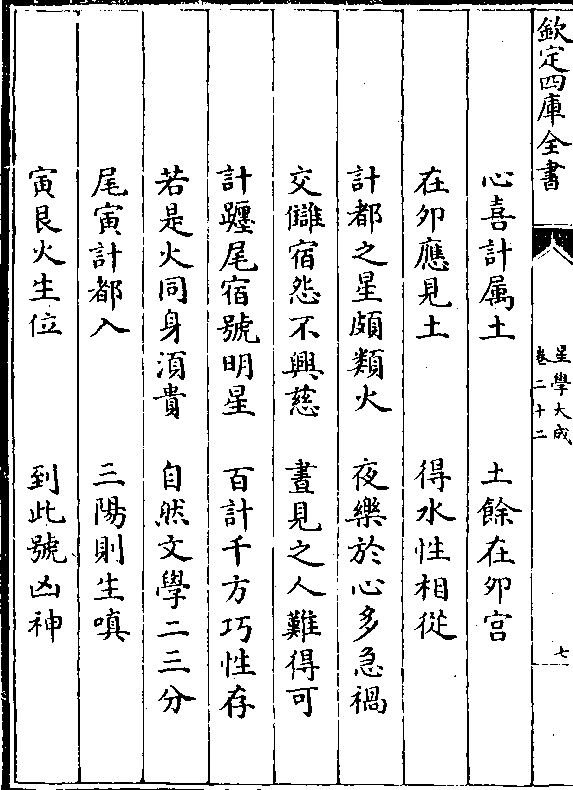 欽定四庫全書
星學大成
卷二十二
七
心喜計屬土　土餘在夘宫
在夘應見土　得水性相從
計都之星頗類火　夜樂於心多急禍
交讎宿怨不興慈　晝見之人難得可
計躔尾宿號明星　百計千方巧性存
若是火同身須貴　自然文學二三分
尾寅計都入　三陽則生嗔
寅艮火生位　到此號凶神